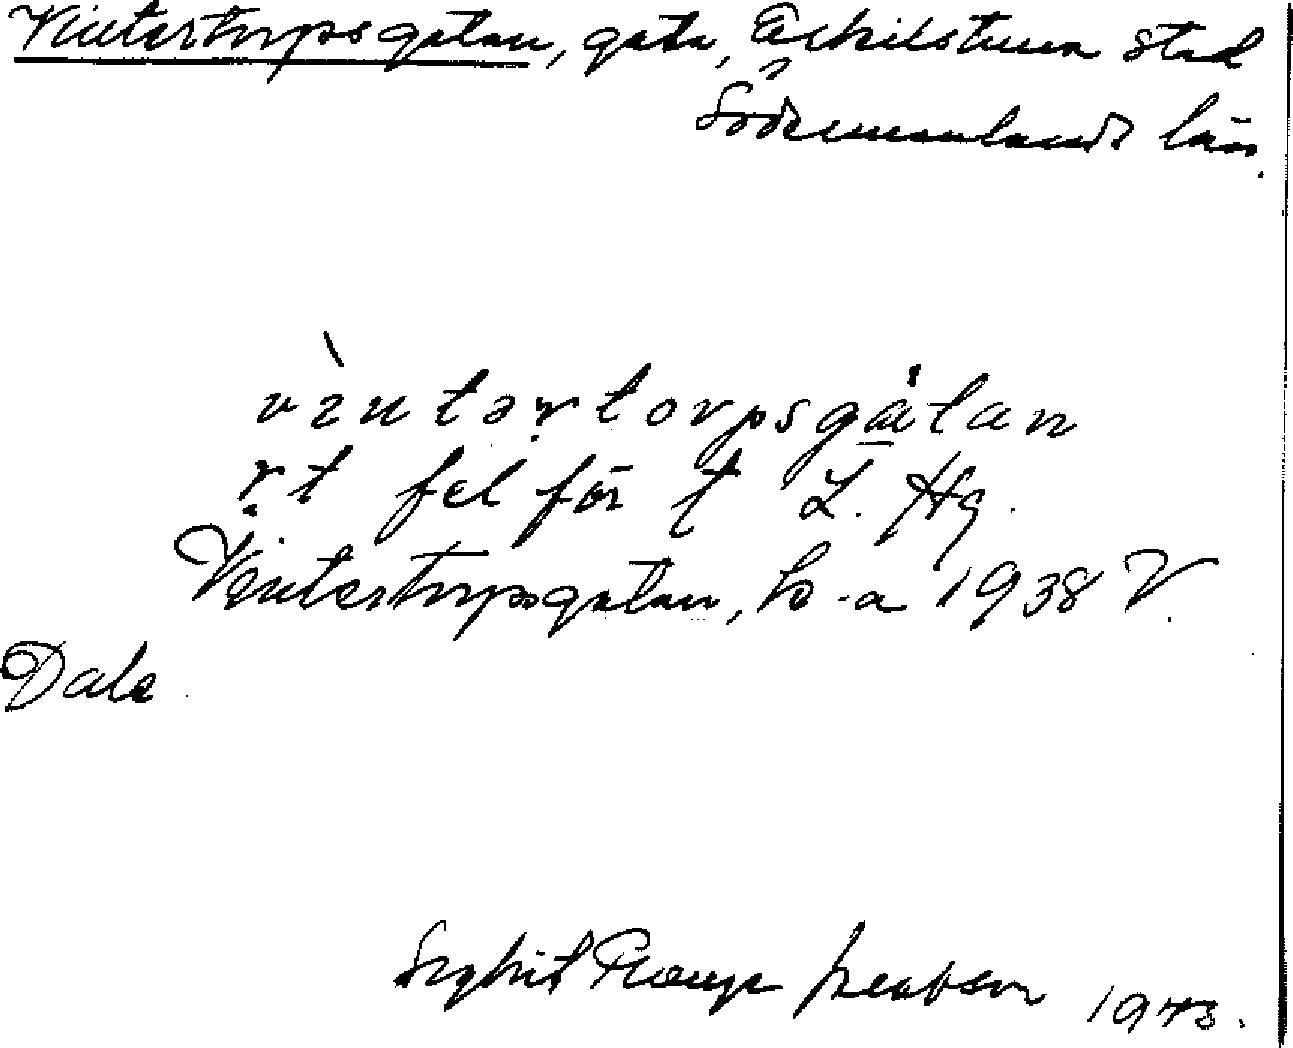 Vintertorpsgatan, gata, Eskilstuna stad
Södermanlands län.
vìntərtorpsgátan
ṛt fel för ƫ L. Hg.
Vintertorpsgatan, 1938 V.
Dale
Sigbrit Plænge Jacobson 1943.